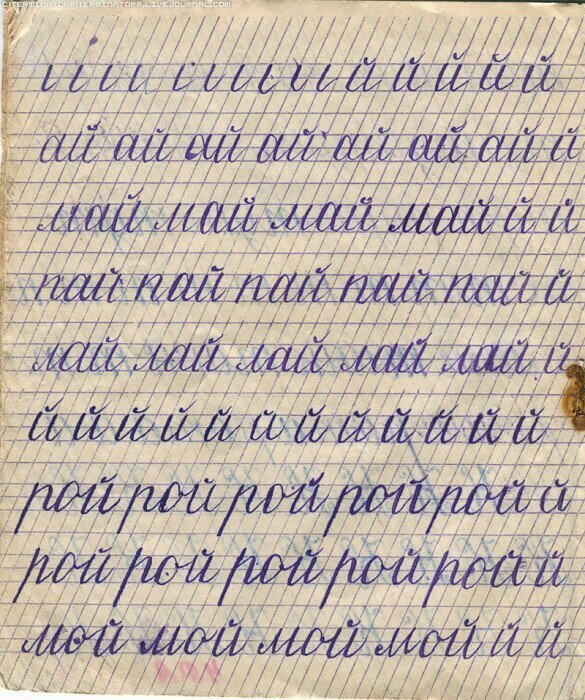 CITERMINATORRITERMINATORR.LIVEJOURNAL.COM
й й й й й
ай ай ай ай ай ай ай й
май май май май й й
пай пай пай пай пай й
лай лай лай лай лай й
й й й й й й й й й й й й
рой рой рой рой рой й
рой рой рой рой рой й
мой мой мой мой й й